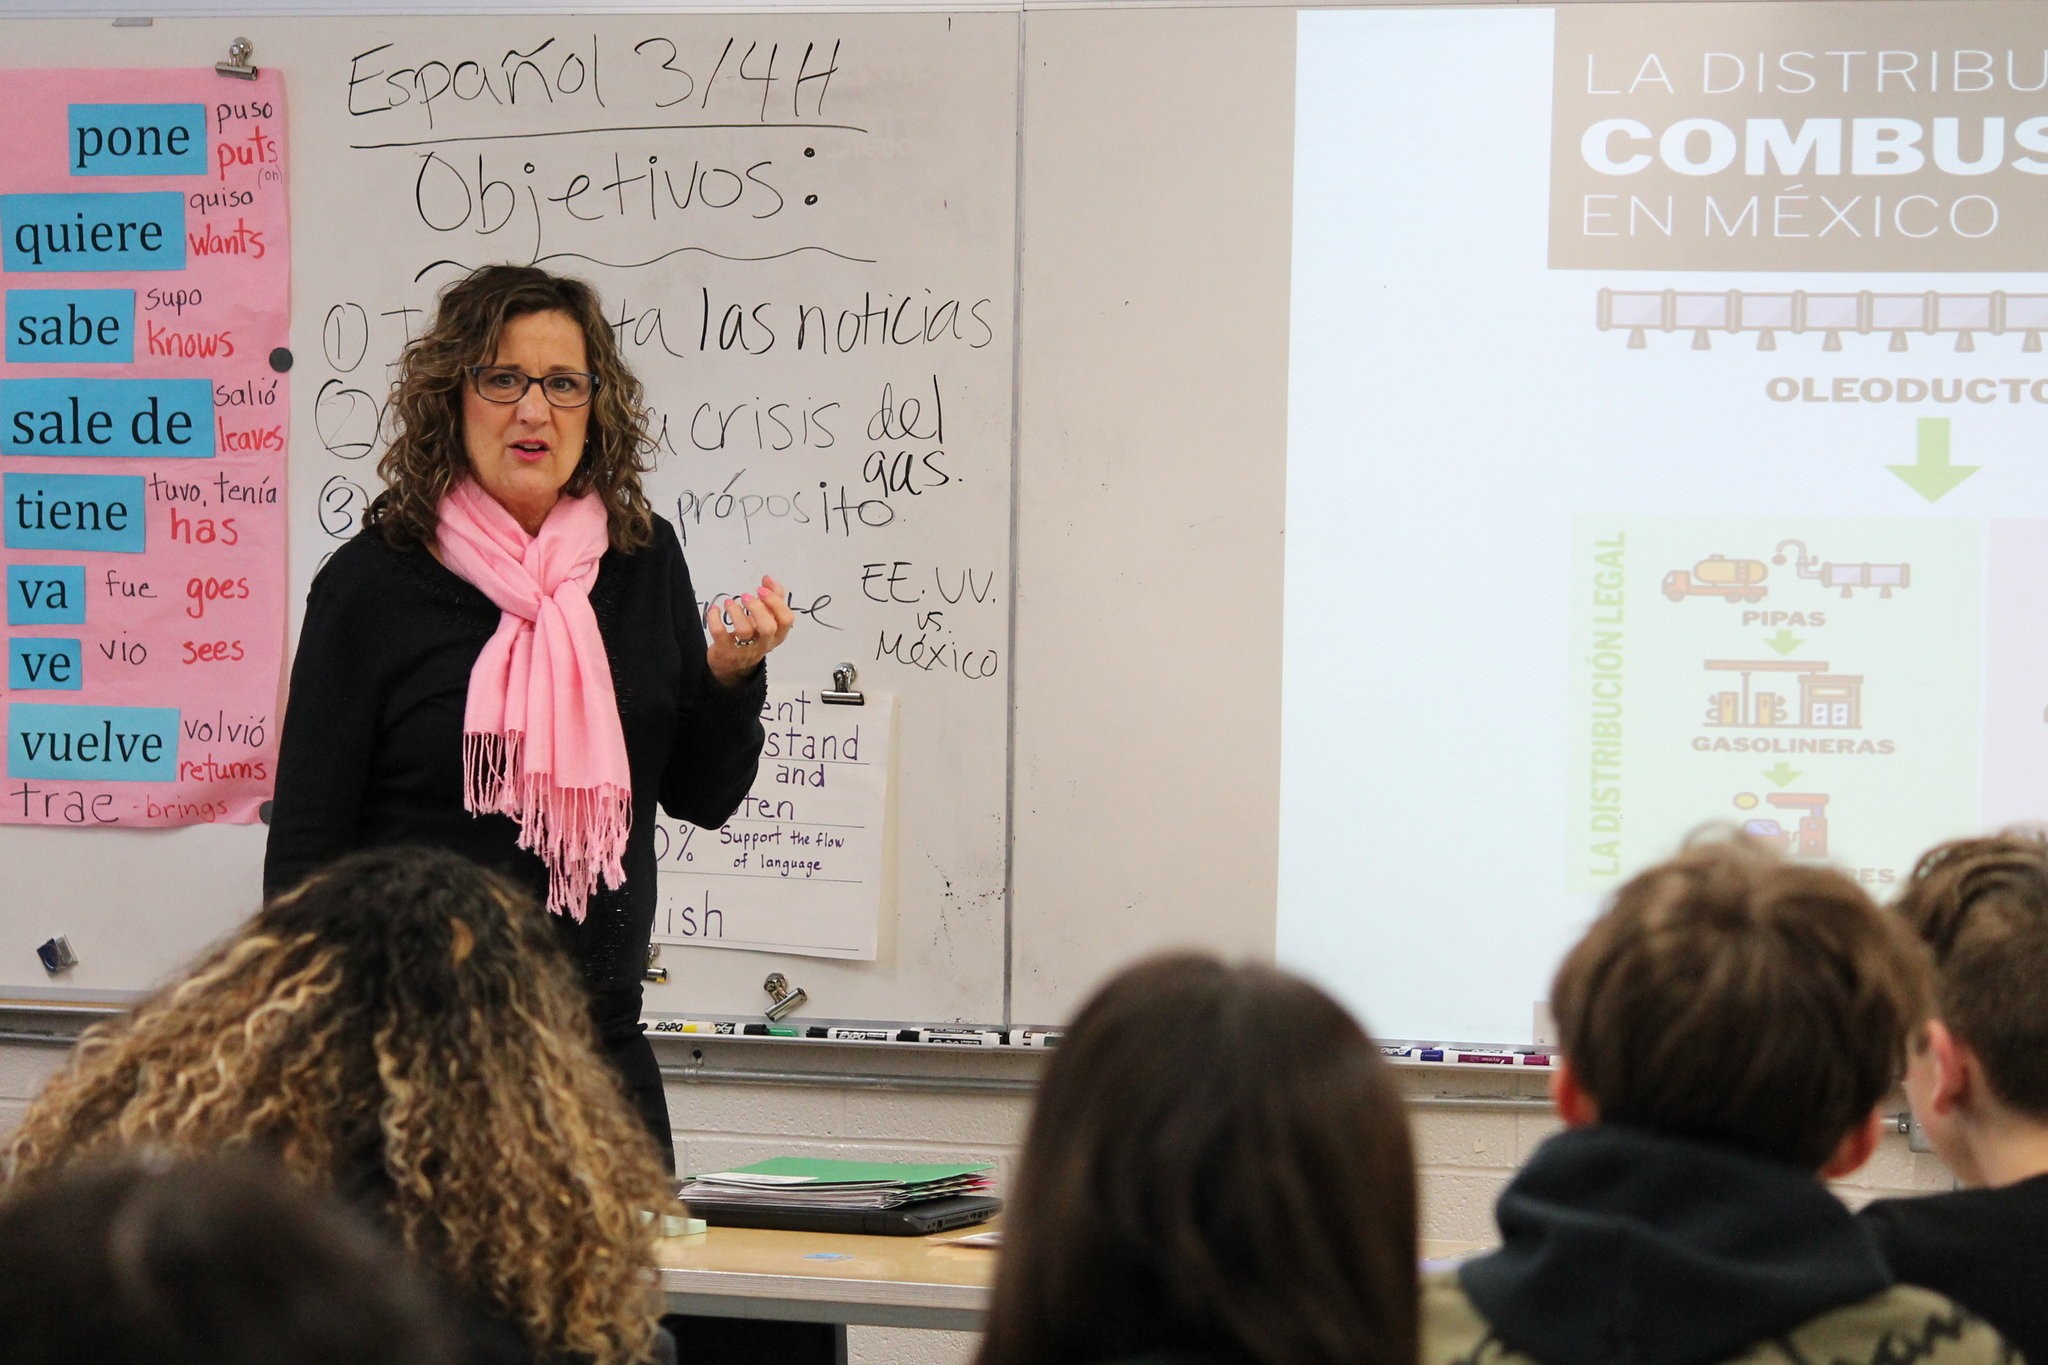 pone puso
puts
(on)
quiere quiso
wants
sabe supo
knows
sale de salió
leaves
tiene tuvo, tenía
has
va fue goes
ve vio sees
vuelve volvió
returns
trae - brings
Español 3/4H
Objetivos:
① I ta las noticias
② a crisis del
gas.
③ próposito.
te
EE.UU.
vs.
México
ent
stand
and
ten
0% Support the flow
of language
lish
EXPO
LA DISTRIBU
COMBUS
EN MÉXICO
OLEODUCTO
LA DISTRIBUCIÓN LEGAL
PIPAS
GASOLINERAS
RES